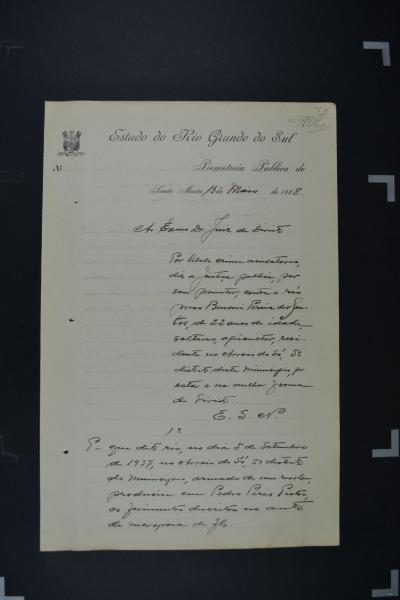 Estado do Rio Grande do Sul
Nº
Promotoria Publica de
Santa Maria, 13 de Maio de 1938.
Ao Exmo Dr. Juiz de Direito
Por libelo crime accusatorio,
diz a Justiça publica, por
seu promotor, contra o réo
Pereira dos San-
tos, de 22 annos de idade,
solteiro, agricultor, resi-
dente no Arroio do Só, 5º
districto deste Municipio, por
esta e na melhor forma
de Direito.
E. S. N.
1º
P- que dito réo, no dia 8 de Setembro
de 1937, no Arroio do Só, 5º districto
do municipio, armado de um
produziu em Pedro Peres
os ferimentos descritos no auto
de de fls.